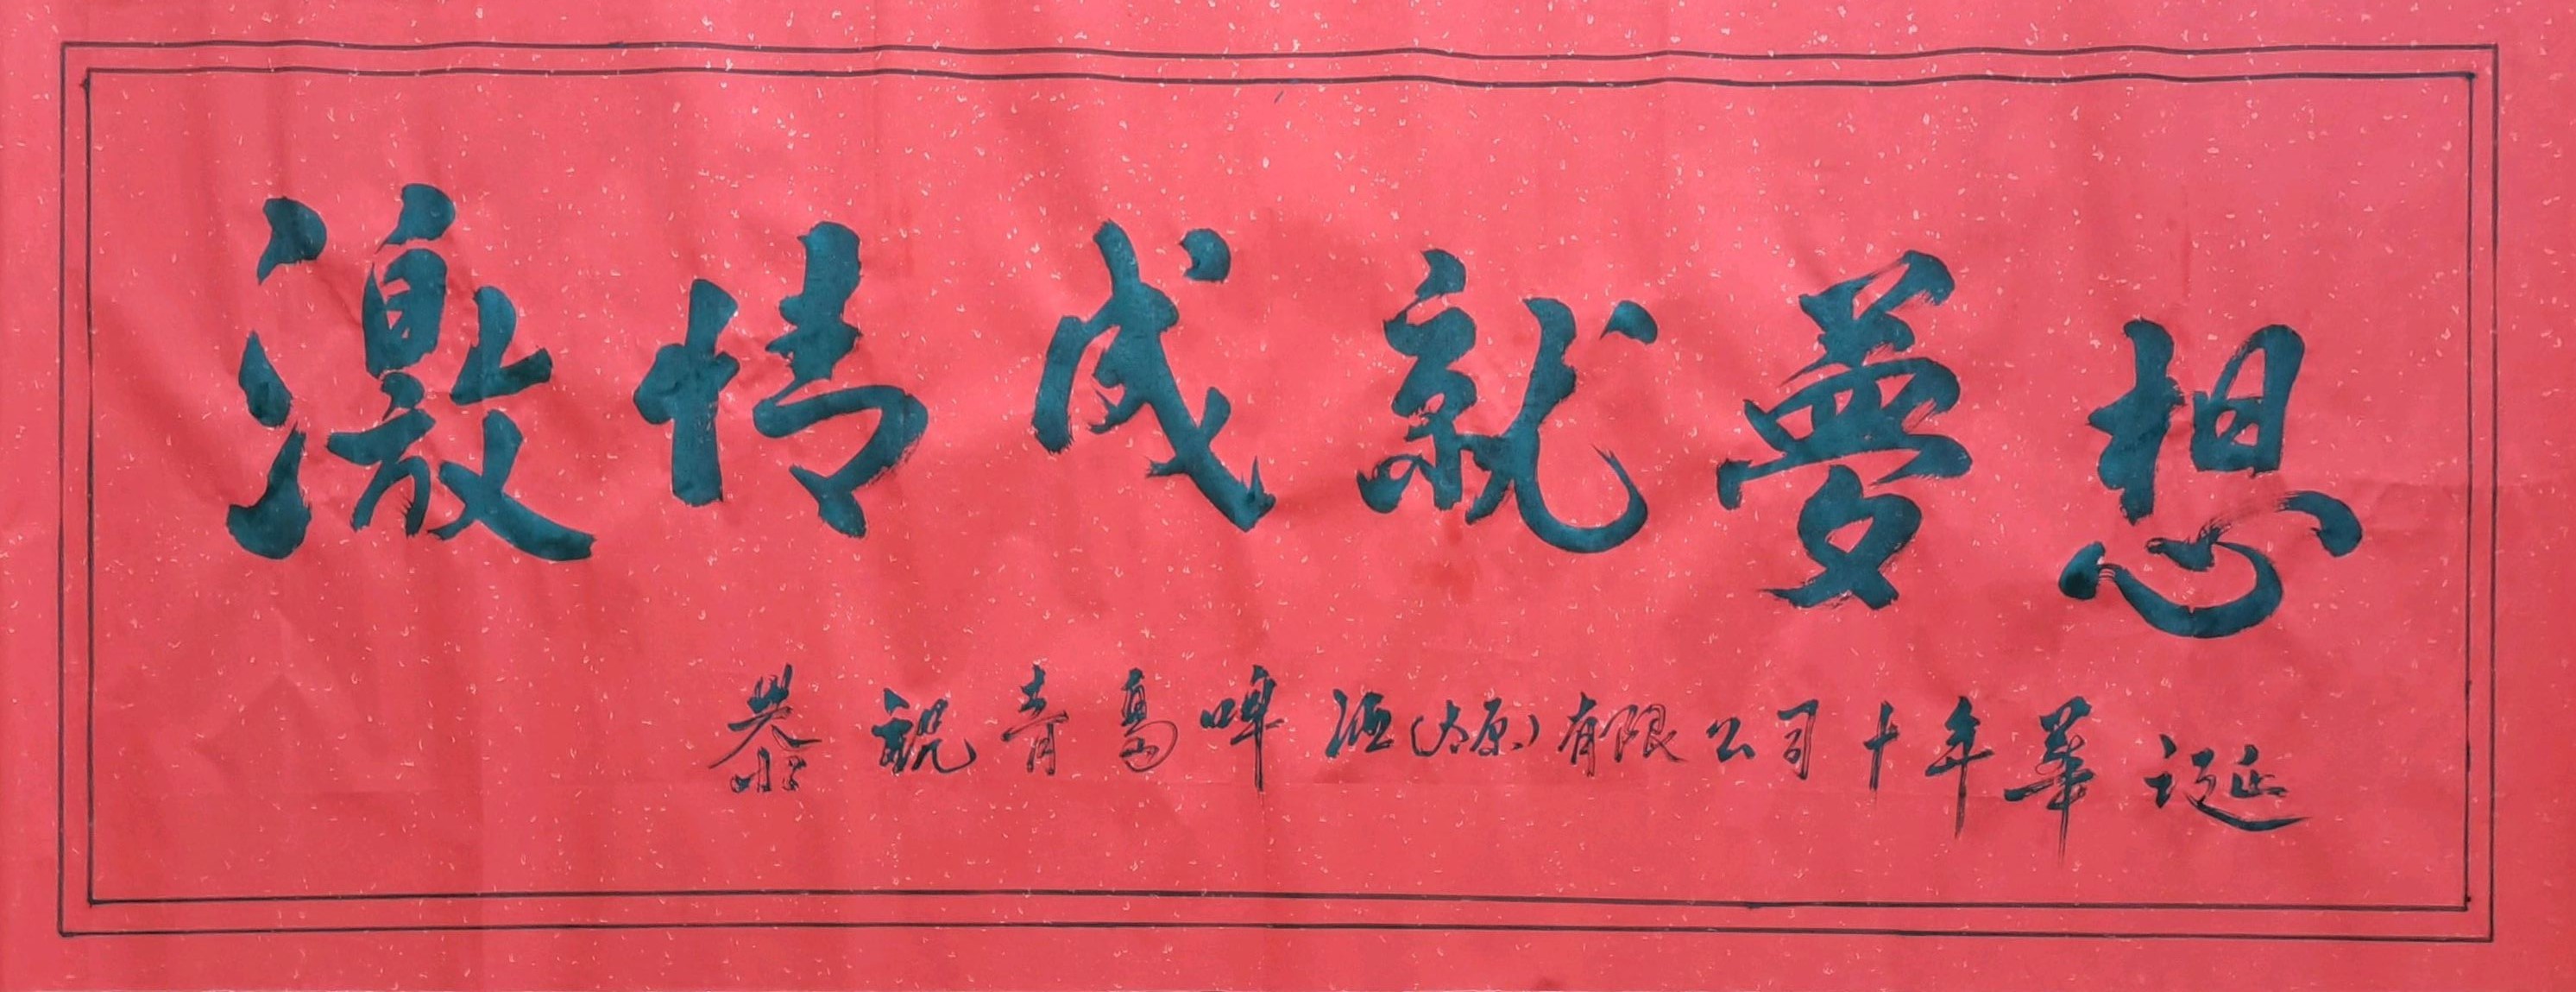 激情成就夢想
恭祝青島啤酒(太原)有限公司十年華诞